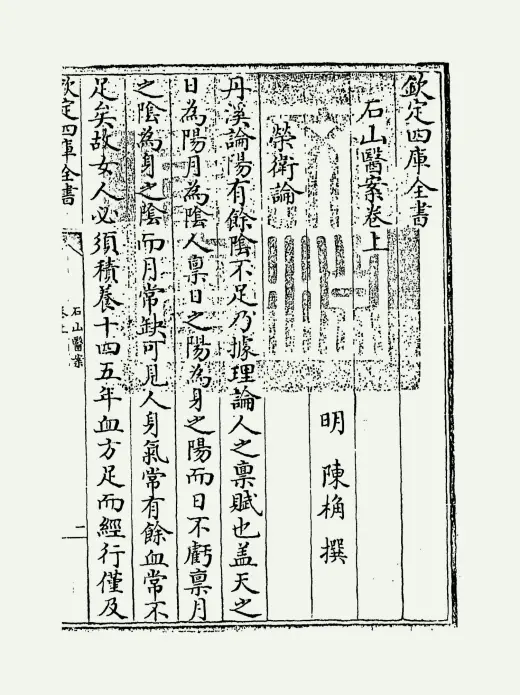 欽定四庫全書
石山醫案卷上
明 陳桷 撰
榮衛論
丹溪論陽有餘陰不足乃據理論人之禀賦也盖天之
日為陽月為陰人禀日之陽為身之陽而日不虧禀月
之陰為身之陰而月常缺可見人身氣常有餘血常不
足矣故女人必須積養十四五年血方足而經行僅及
欽定四庫全書
石山醫案
卷上
一